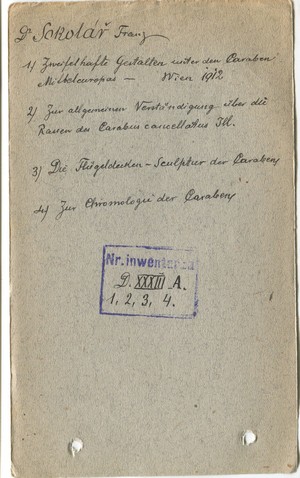 Dr Sokolář Franz
1) Zweifelhafte Gestalten unter den Caraben
Mitteleuropas — Wien 1912
2) Zur allgemeinen Verständigung über die
Rassen des Carabus cancellatus Ill.
3) Die Flügeldecken-Sculptur der Caraben
4) Zur Chromologie der Caraben
Nr. inwentarza
D. XXXIII A.
1, 2, 3, 4.